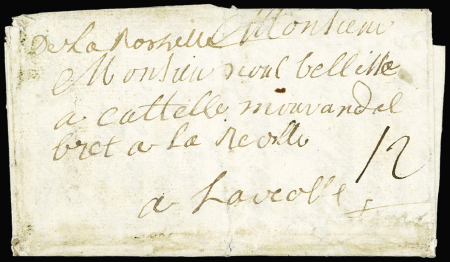 De La Rochelle Monsieur
Monsieur noul bellisle
a cattelle mouvandel
bret a La Reolle
12
a Lareolle